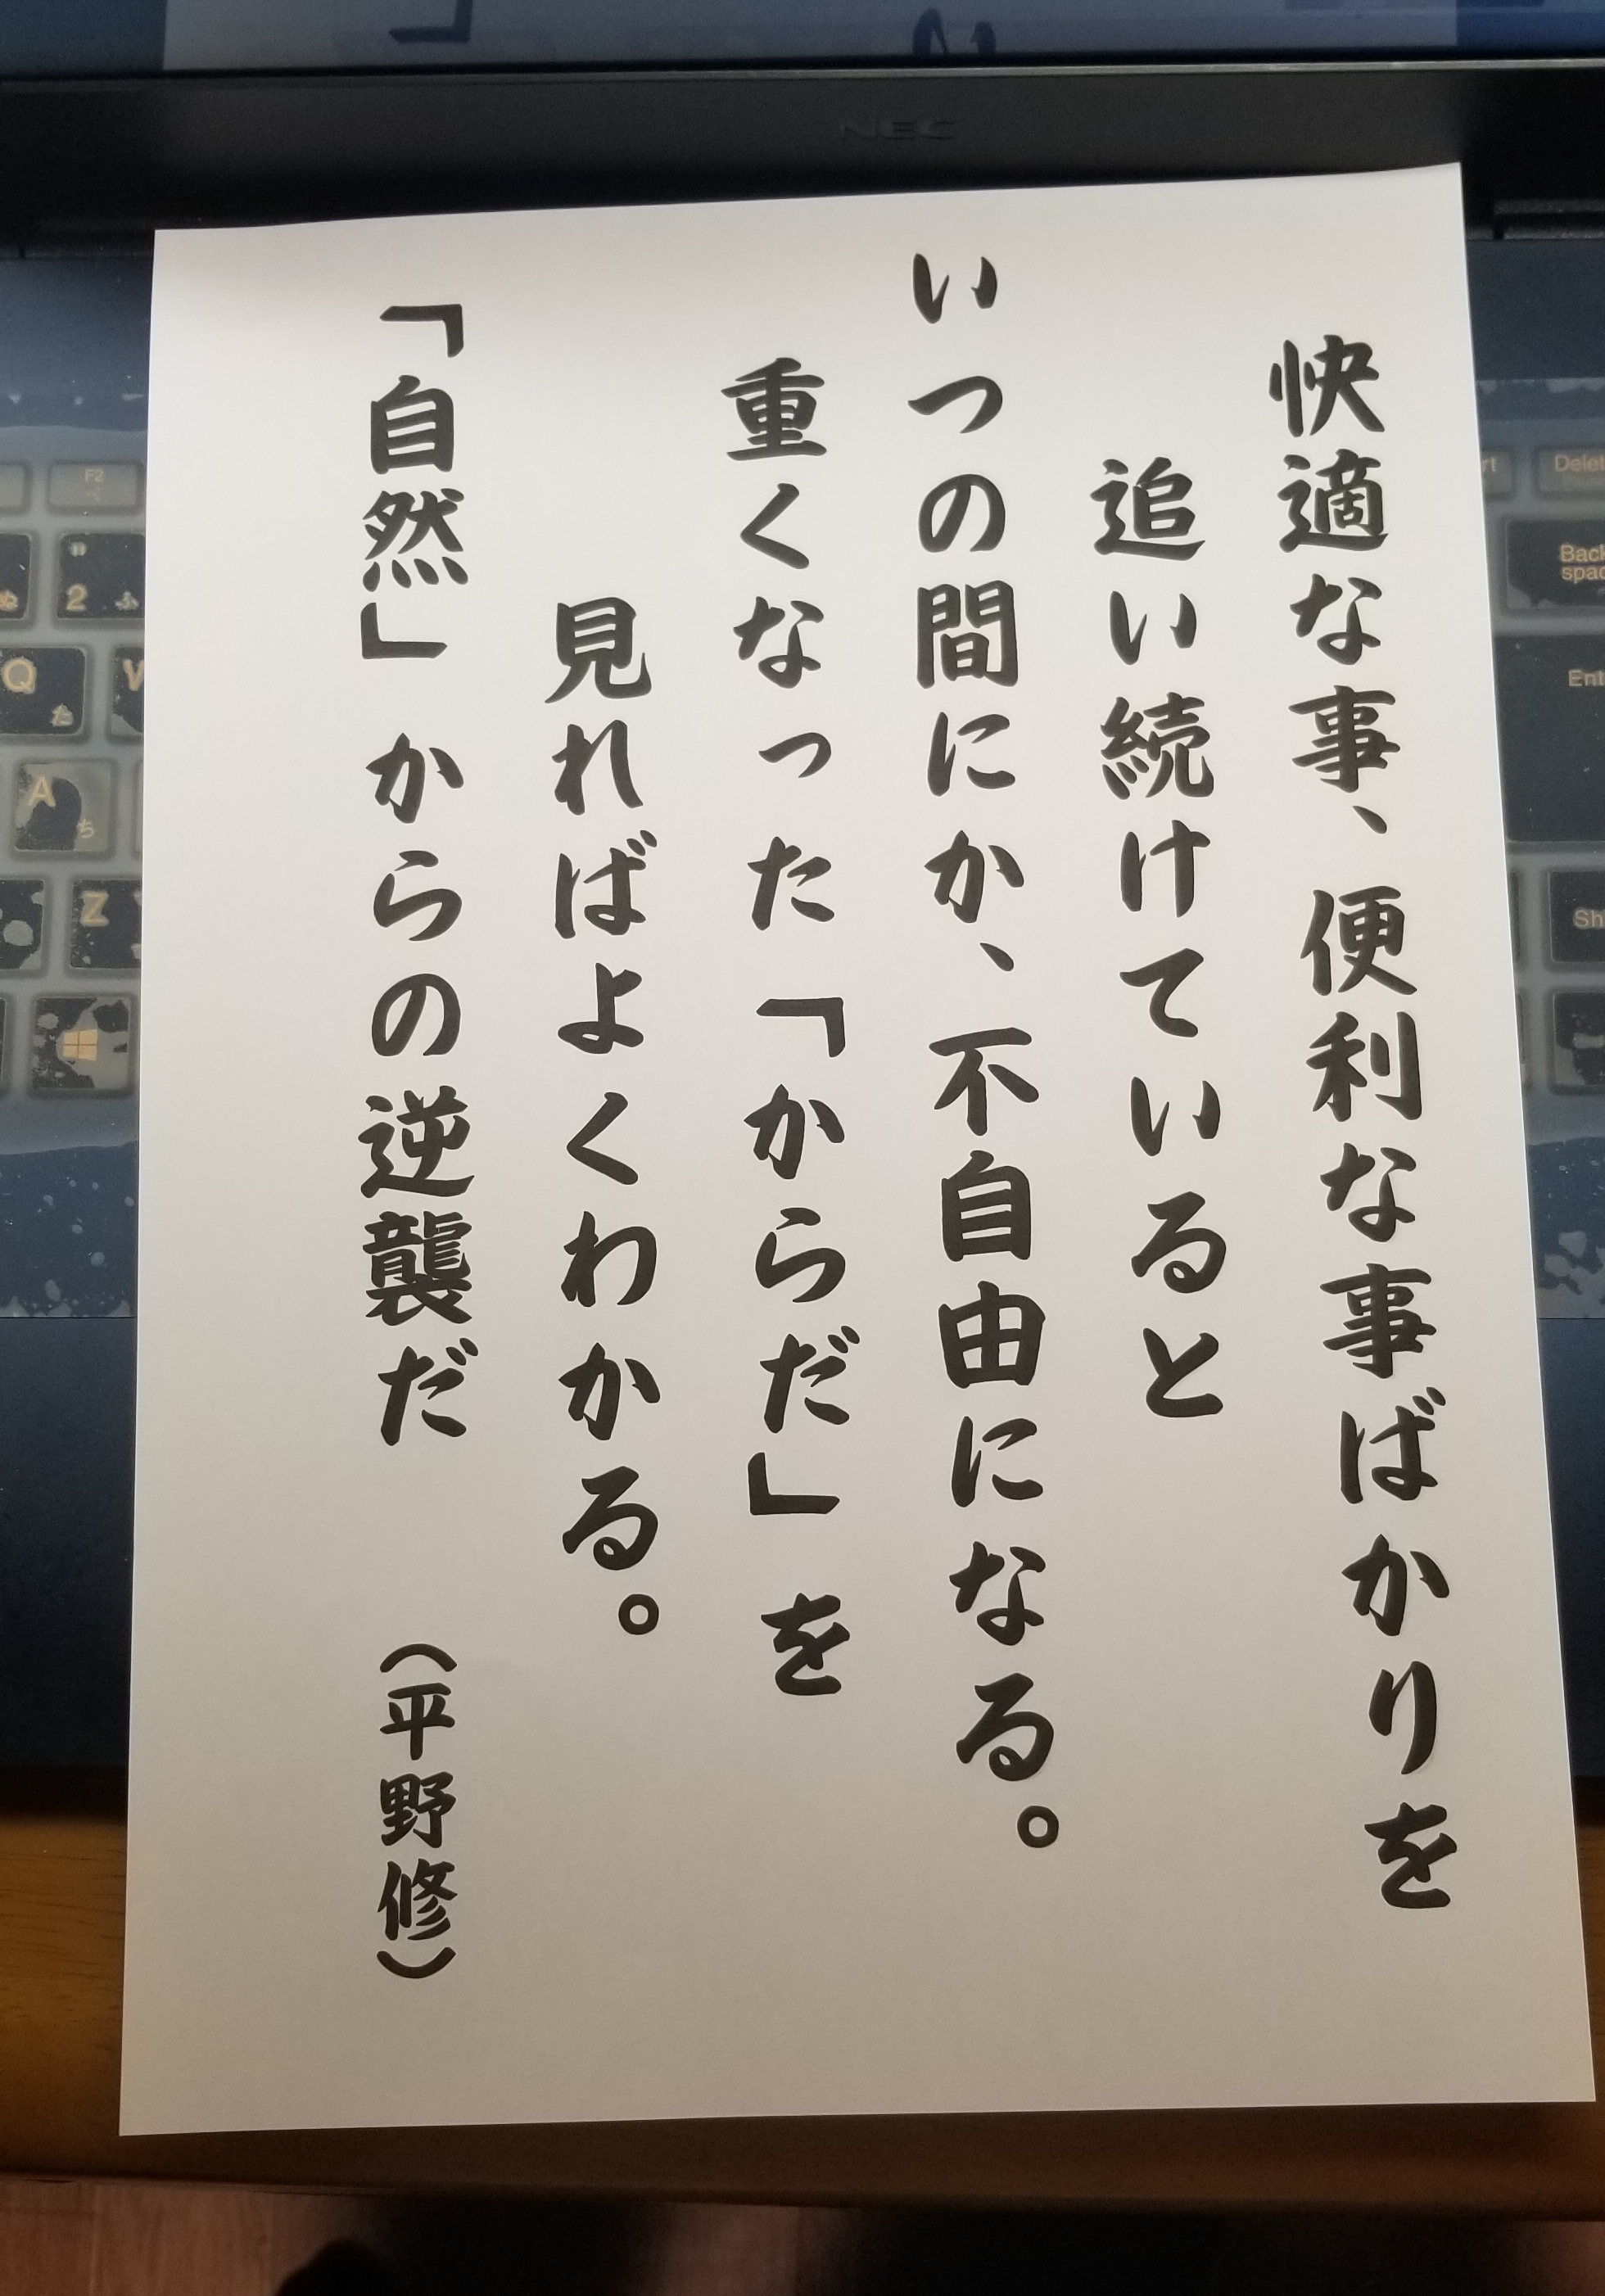 NEC
快適な事、便利な事ばかりを
追い続けていると
いつの間にか、不自由になる。
重くなった「からだ」を
見ればよくわかる。
「自然」からの逆襲だ （平野修）
F2
2 ふ
Q た
A ち
Z
Enter